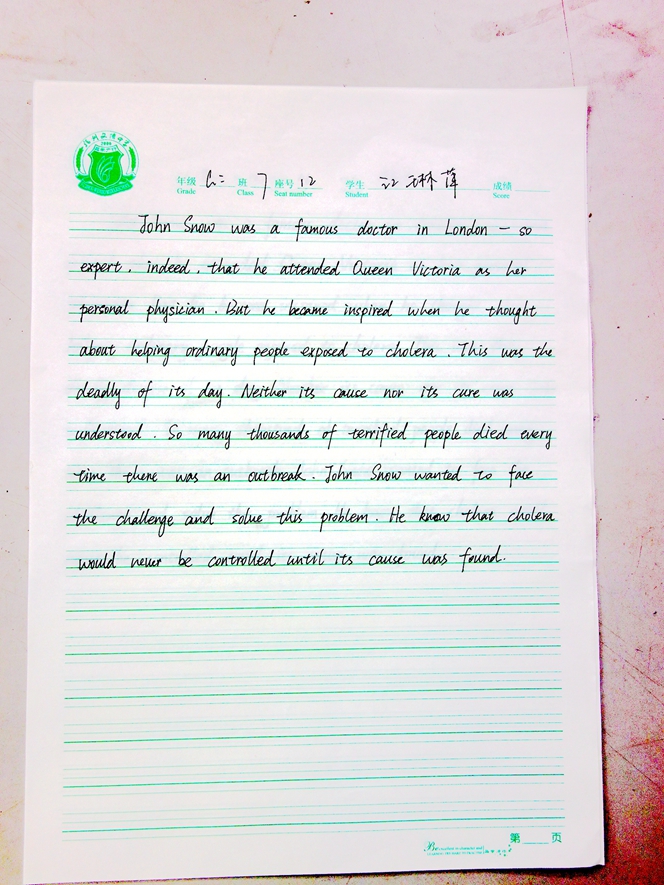 年级 高二 班 7 座号 12 学生 江琳萍 成绩
Grade Class Seat number Student Score
John Snow was a famous doctor in London - so
expert, indeed, that he attended Queen Victoria as her
personal physician. But he became inspired when he thought
about helping ordinary people exposed to cholera. This was the
deadly of its day. Neither its cause nor its cure was
understood. So many thousands of terrified people died every
time there was an outbreak. John Snow wanted to face
the challenge and solve this problem. He know that cholera
would never be controlled until its cause was found.
第 页